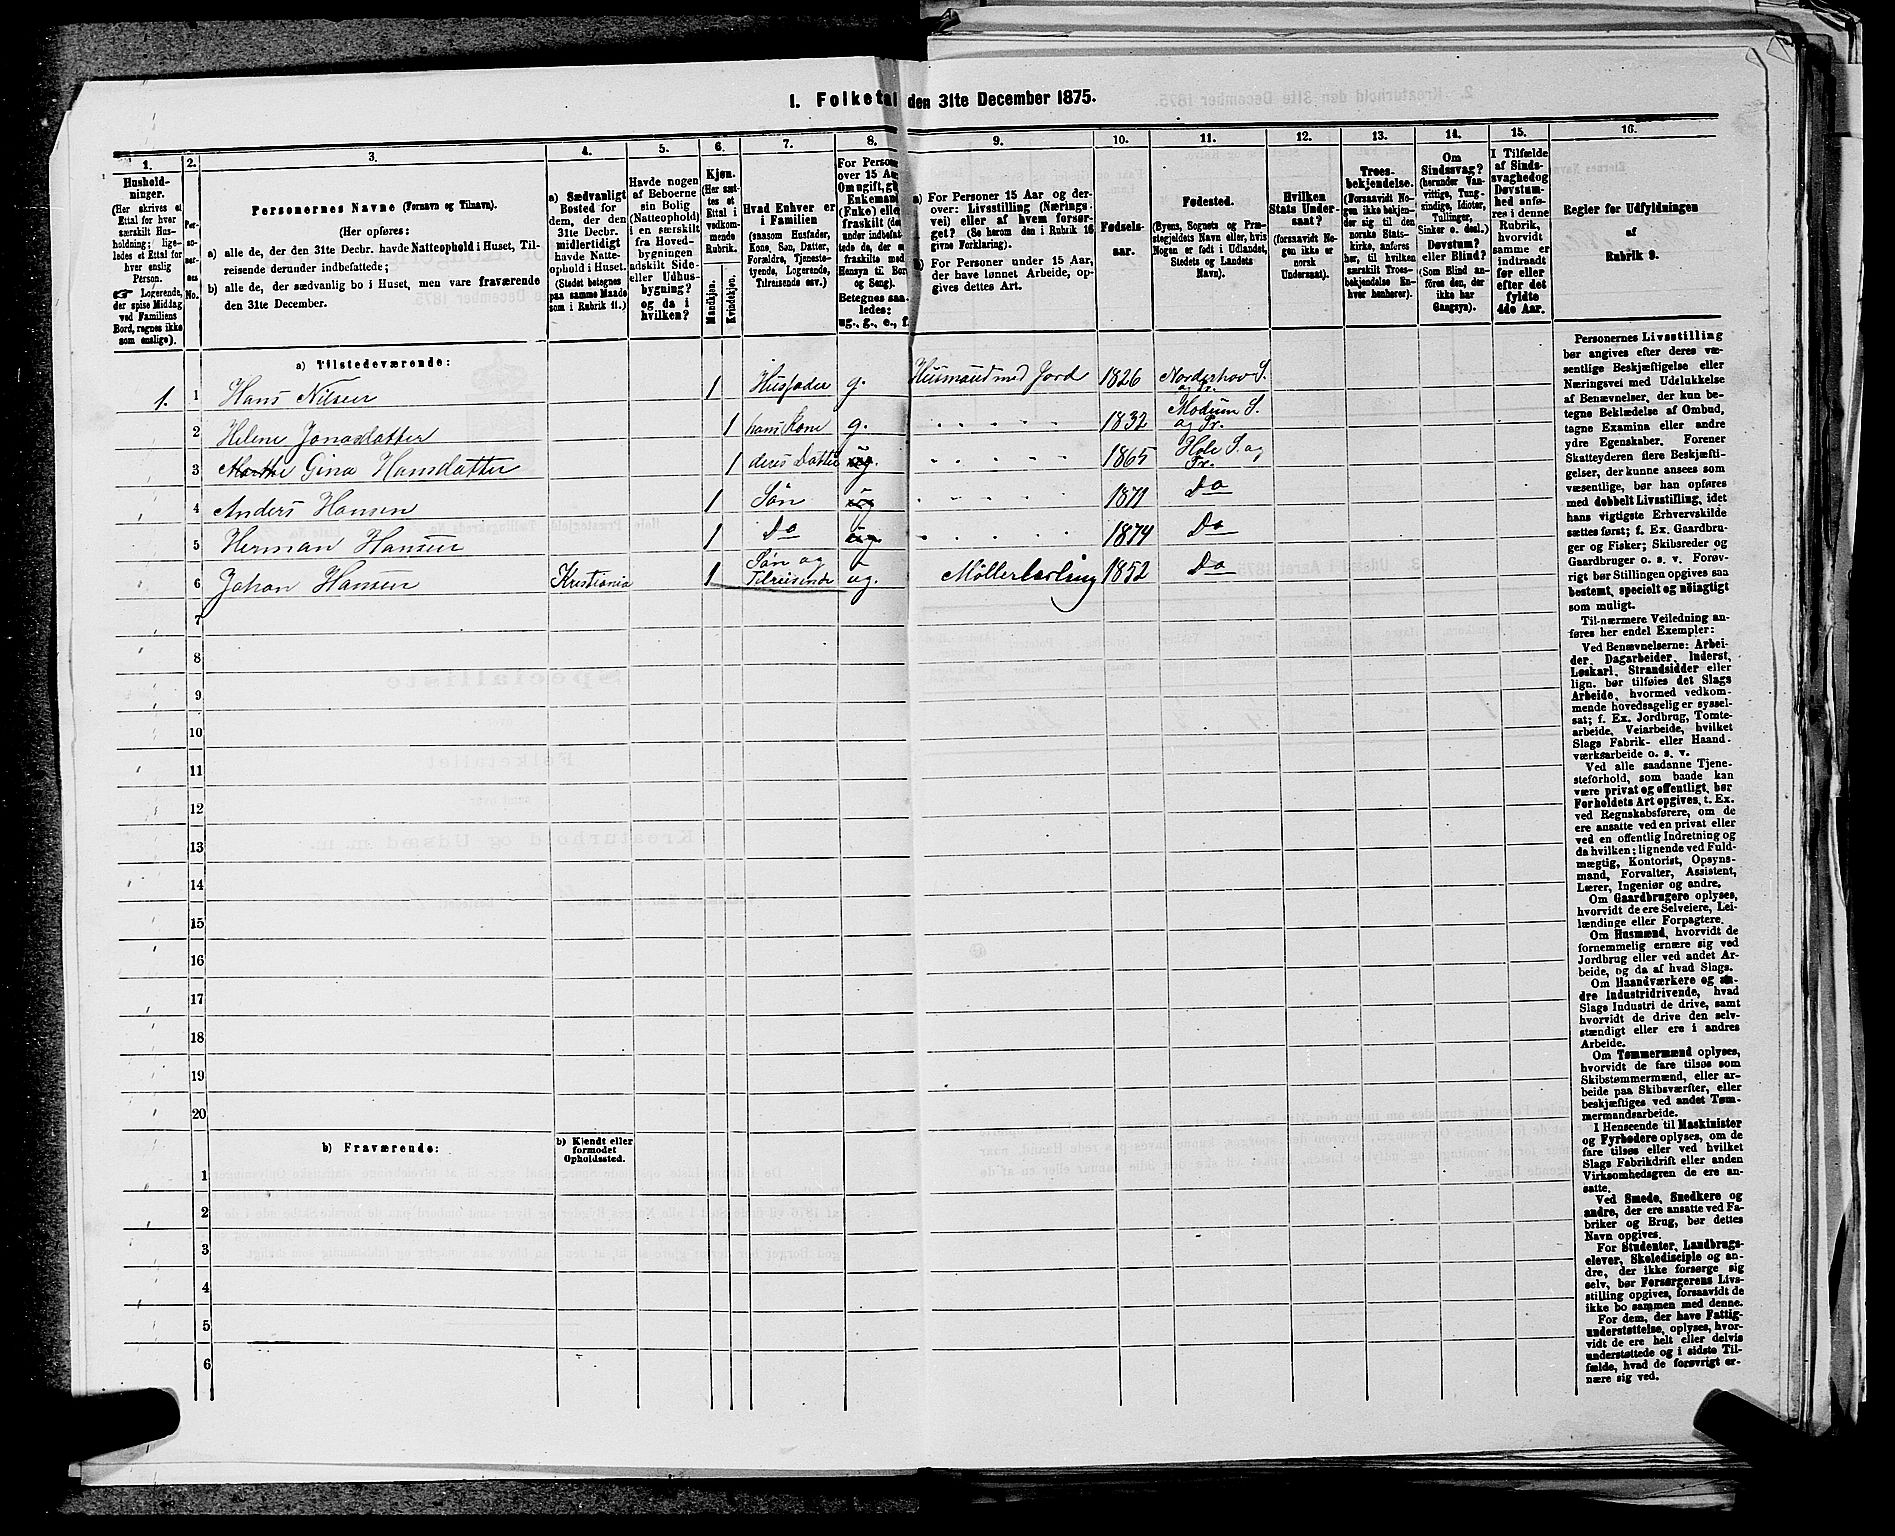 I. Folketal den 31te December 1875.
1. 2. 3. 4. 5. 6. 7. 8. 9. 10. 11. 12. 13. 14. 15. 16.
Hushold-
ninger.
(Her skrives et
Ettal for hver
særskilt Hus-
holdning; lige-
ledes et Ettal for
hver enslig
Person.
☞ Logerende,
der spise Middag
ved Familiens
Bord, regnes ikke
som enslige).
Personernes Navne (Fornavn og Tilnavn).
(Her opføres:
a) alle de, der den 31te Decbr. havde Natteophold i Huset, Til-
reisende derunder indbefattede;
b) alle de, der sædvanlig bo i Huset, men vare fraværende
den 31te December.
a) Sædvanligt
Bosted for
dem, der den
31te Decbr.
midlertidigt
havde Natte-
ophold i Huset.
(Stedet betegnes
paa samme Maade
som i Rubrik 11.)
Havde nogen
af Beboerne
sin Bolig
(Natteophold)
i en særskilt
fra Hoved-
bygningen
adskilt Side-
eller Udhus-
bygning?
og da i
hvilken?
Kjøn.
(Her sæt-
tes et
Ettal i
vedkom-
mende
Rubrik.
Mandkjøn.
Kvindekjøn.
Hvad Enhver er
i Familien
(saasom Husfader,
Kone, Søn, Datter,
Forældre, Tjeneste-
tyende, Logerende,
Tilreisende osv.)
For Persone
over 15 Aa
Om ugift, gi
Enkeman
(Enke) elle
fraskilt (de
under indbefat
tede de, der e
fraskilte med
Hensyn til Bor
og Seng).
Betegnes saa-
ledes:
ug., g., e., f.
a) For Personer 15 Aar og der-
over: Livsstilling (Nærings-
vei) eller af hvem forsør-
get? (Se herom den i Rubrik 16
givne Forklaring).
b) For Personer under 15 Aar,
der have lønnet Arbeide, op-
gives dettes Art.
Fødsels-
aar.
Fødested.
(Byens, Sognets og Præ-
stegjeldets Navn eller, hvis
Nogen er født i Udlandet,
Stedets og Landets
Navn).
Hvilken
Stats Under-
saat?
(forsaavidt No-
gen ikke er
norsk
Undersaat).
Troes-
bekjendelse.
(Forsaavidt No-
gen ikke bekjen-
der sig til den
norske Stats-
kirke, anføres
her, til hvilken
særskilt Troes-
bekjendelse En-
hver henhører).
Om
Sindssvag?
(herunder Van-
vittige, Tung-
sindige, Idioter,
Tullinger,
Sinker o. desl.)
Døvstum?
eller Blind?
(Som Blind an-
føres den, der
ikke har
Gangsyn).
I Tilfælde
af Sinds-
svaghed og
Døvstum-
hed anfø-
res i denne
Rubrik,
hvorvidt
samme er
indtraadt
før eller
efter det
fyldte
4de Aar.
Regler for Udfyldningen
af
Rubrik 9.
a) Tilstedeværende:
1. 1 Hans Nilsen 1 Husfader g. Husmand med Jord 1826 Norderhov S. og Pr.
2 Helene Jonasdatter 1 hans Kone g. " " " " " 1832 Modum S. og Pr.
3 Marthe Gina Hansdatter 1 deres Datter ug. " " " " " 1865 Hole S. og Pr.
4 Anders Hansen 1 Søn ug " " " " " 1871 Do
5 Herman Hansen 1 Do ug " " " " " 1874 Do
6 Johan Hansen Kristiania 1 Søn og Tilreisende ug. Møllerlærling 1852 Do
7
8
9
10
11
12
13
14
15
16
17
18
19
20
b) Fraværende:
b) Kjendt eller
formodet
Opholdssted.
1
2
3
4
5
6
Personernes Livsstilling
bør angives efter deres væ-
sentlige Beskjæftigelse eller
Næringsvei med Udelukkelse
af Benævnelser, der kun be-
tegne Beklædelse af Ombud,
tagne Examina eller andre
ydre Egenskaber. Forener
Skatteyderen flere Beskjæfti-
gelser, der kunne ansees som
væsentlige, bør han opføres
med dobbelt Livsstilling, idet
hans vigtigste Erhvervskilde
sættes først; f. Ex. Gaardbru-
ger og Fisker; Skibsreder og
Gaardbruger o. s. v. Forøv-
rigt bør Stillingen opgives saa
bestemt, specielt og nøiagtigt
som muligt.
Til nærmere Veiledning an-
føres her endel Exempler:
Ved Benævnelserne: Arbei-
der, Dagarbeider, Inderst,
Løskarl, Strandsidder eller
lign. bør tilføies det Slags
Arbeide, hvormed vedkom-
mende hovedsagelig er syssel-
sat; f. Ex. Jordbrug, Tomte-
arbeide, Veiarbeide, hvilket
Slags Fabrik- eller Haand-
værksarbeide o. s. v.
Ved alle saadanne Tjene-
steforhold, som baade kan
være privat og offentligt, bør
Forholdets Art opgives, t. Ex.
ved Regnskabsførere, om de
ere ansatte ved en privat eller
ved en offentlig Indretning og
da hvilken; lignende ved Fuld-
mægtig, Kontorist, Opsyns-
mand, Forvalter, Assistent,
Lærer, Ingeniør og andre.
Om Gaardbrugere oplyses,
hvorvidt de ere Selveiere, Lei-
lændinge eller Forpagtere.
Om Husmænd, hvorvidt de
fornemmelig ernære sig ved
Jordbrug eller ved andet Ar-
beide, og da af hvad Slags.
Om Haandværkere og an-
dre Industridrivende, hvad
Slags Industri de drive, samt
hvorvidt de drive den selv-
stændigt eller ere i andres
Arbeide.
Om Tømmermænd oplyses,
hvorvidt de fare tilsøs som
Skibstømmermænd, eller ar-
beide paa Skibsværfter, eller
beskjæftiges ved andet Tøm-
mermandsarbeide.
I Henseende til Maskinister
og Fyrbødere oplyses, om de
fare tilsøs eller ved hvilket
Slags Fabrikdrift eller anden
Virksomhedsgren de ere an-
satte.
Ved Smede, Snedkere og
andre, der ere ansatte ved Fa-
briker og Brug, bør dettes
Navn opgives.
For Studenter, Landbrugs-
elever, Skoledisciple og an-
dre, der ikke forsørge sig
selv, bør Forsørgerens Livs-
stilling opgives, forsaavidt de
ikke bo sammen med denne.
For dem, der have Fattig-
understøttelse, oplyses, hvor-
vidt de ere helt eller delvis
understøttede og i sidste Til-
fælde, hvad de forøvrigt er-
nære sig ved.